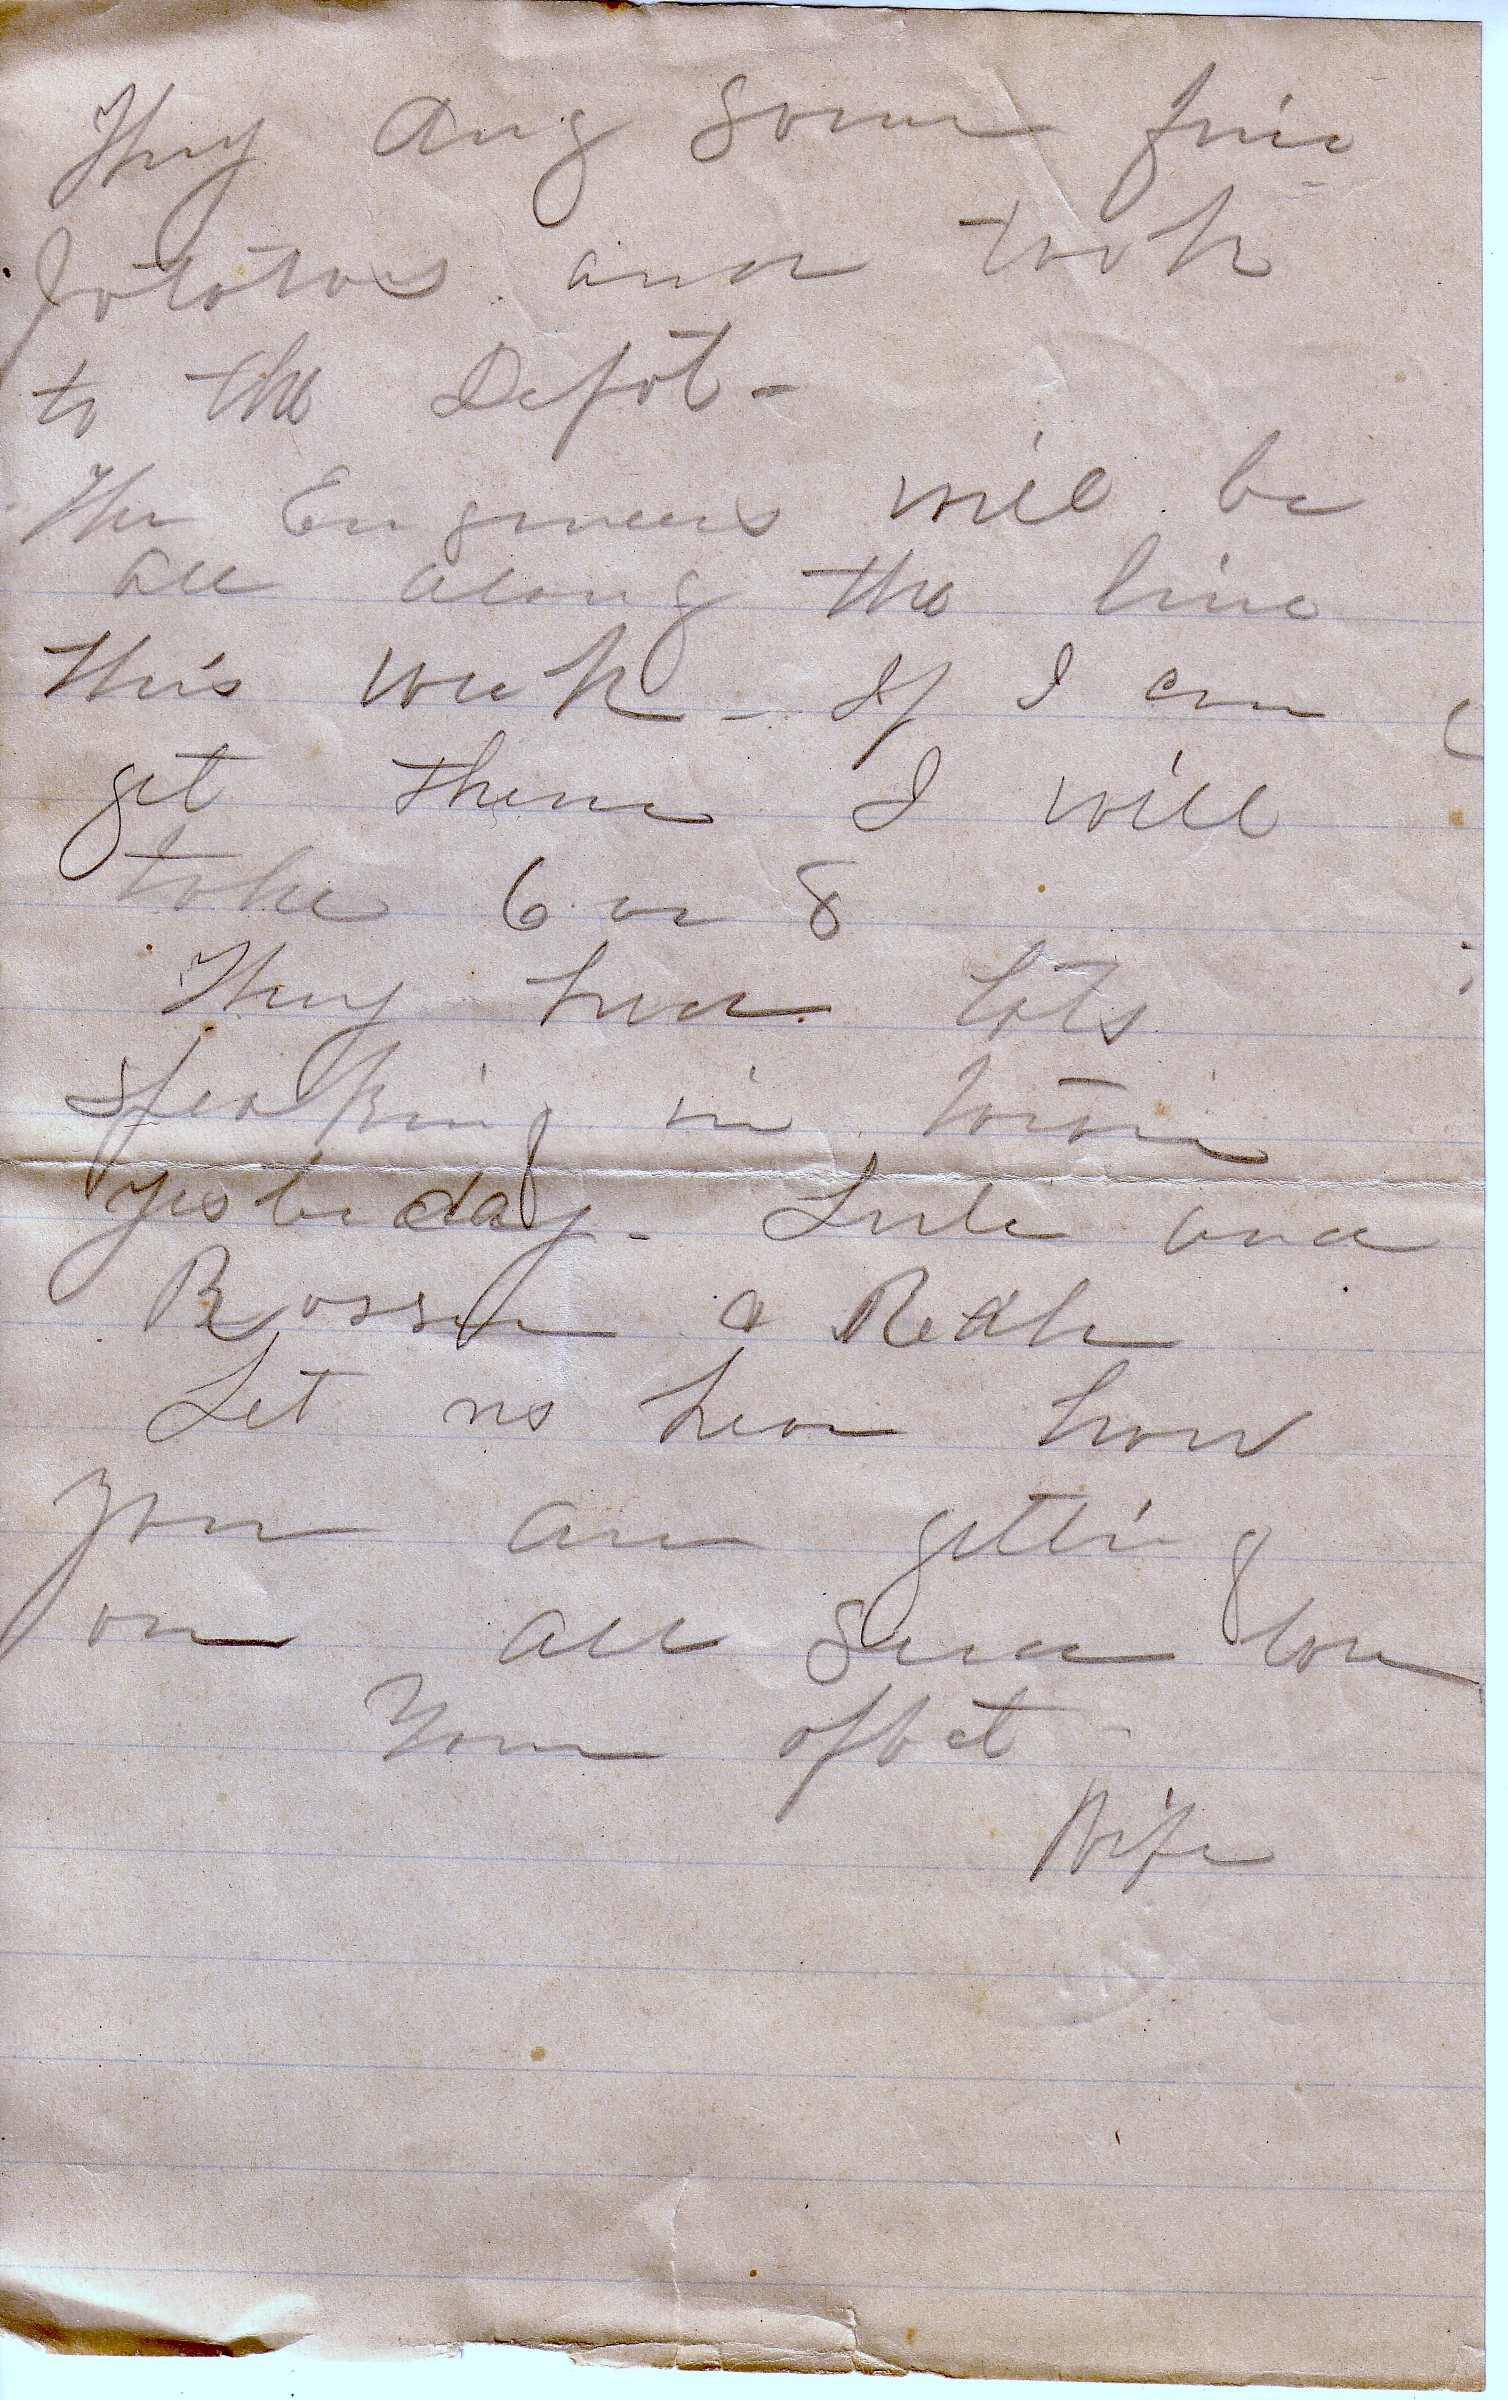 They dug some fine
potatoes and took
to the Depot -
The Engineers will be
all along the line
this week - If I can
get them I will
take 6 or 8
They had lots
speaking in town
yesterday - and
&
Let us hear how
you are getting
on all send love
Your affect -
Wife